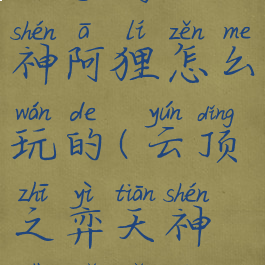 shén ā lí zěn me
神阿狸怎么
wán de yún dǐng
玩的(云顶
zhī yì tiān shén
之弈天神